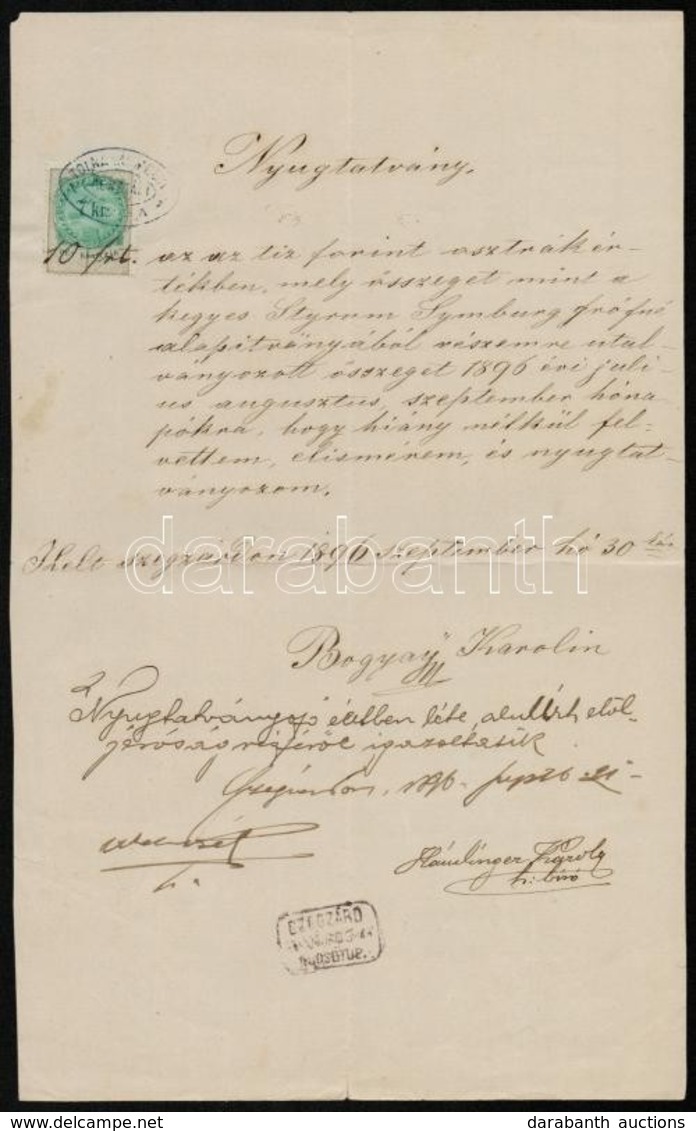 Nyugtatvány.
7 kr.
10 frt. az az tiz forint osztrák ér-
tékben, mely összeget mint a
kegyes Styrum Lymburg frófné
alapitványából részemre utal-
ványozott összeget 1896 évi juli-
us augusztus, szeptember hóna
pókra, hogy hiány nélkül fel-
vettem, elismérem, és nyugtat-
ványozom.
Kelt szegzárdon 1896 szeptember hó 30 -
darabanth
Bogyaÿ Karolin
Nyugtatványozó életben léte, alulírt elöl-
járóság részéről igazoltatik
1896.
Háudinger Károly
h: biró
SZEGZÁRD
darabanth auctions